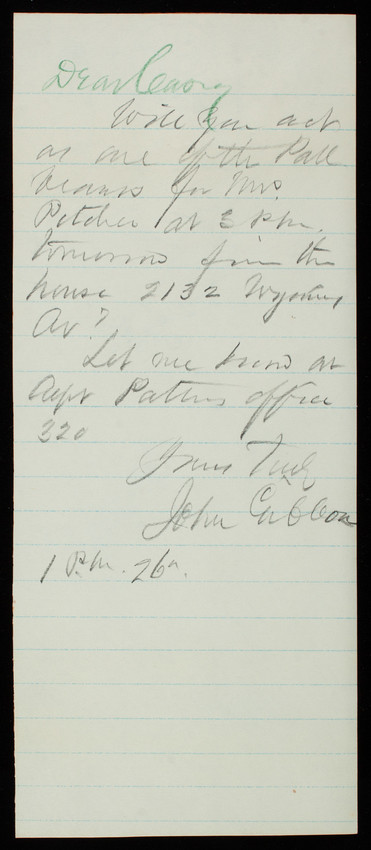 Dear Casey
Will you act
as one of the Pall
bearers for Mrs.
Pitcher at 3 P.M.
tomorrow from the
house 2132 Wyoming
Av?
Let me know at
Dept office
320
Yours Truly
John Gibbon
1 P.M. 26th.